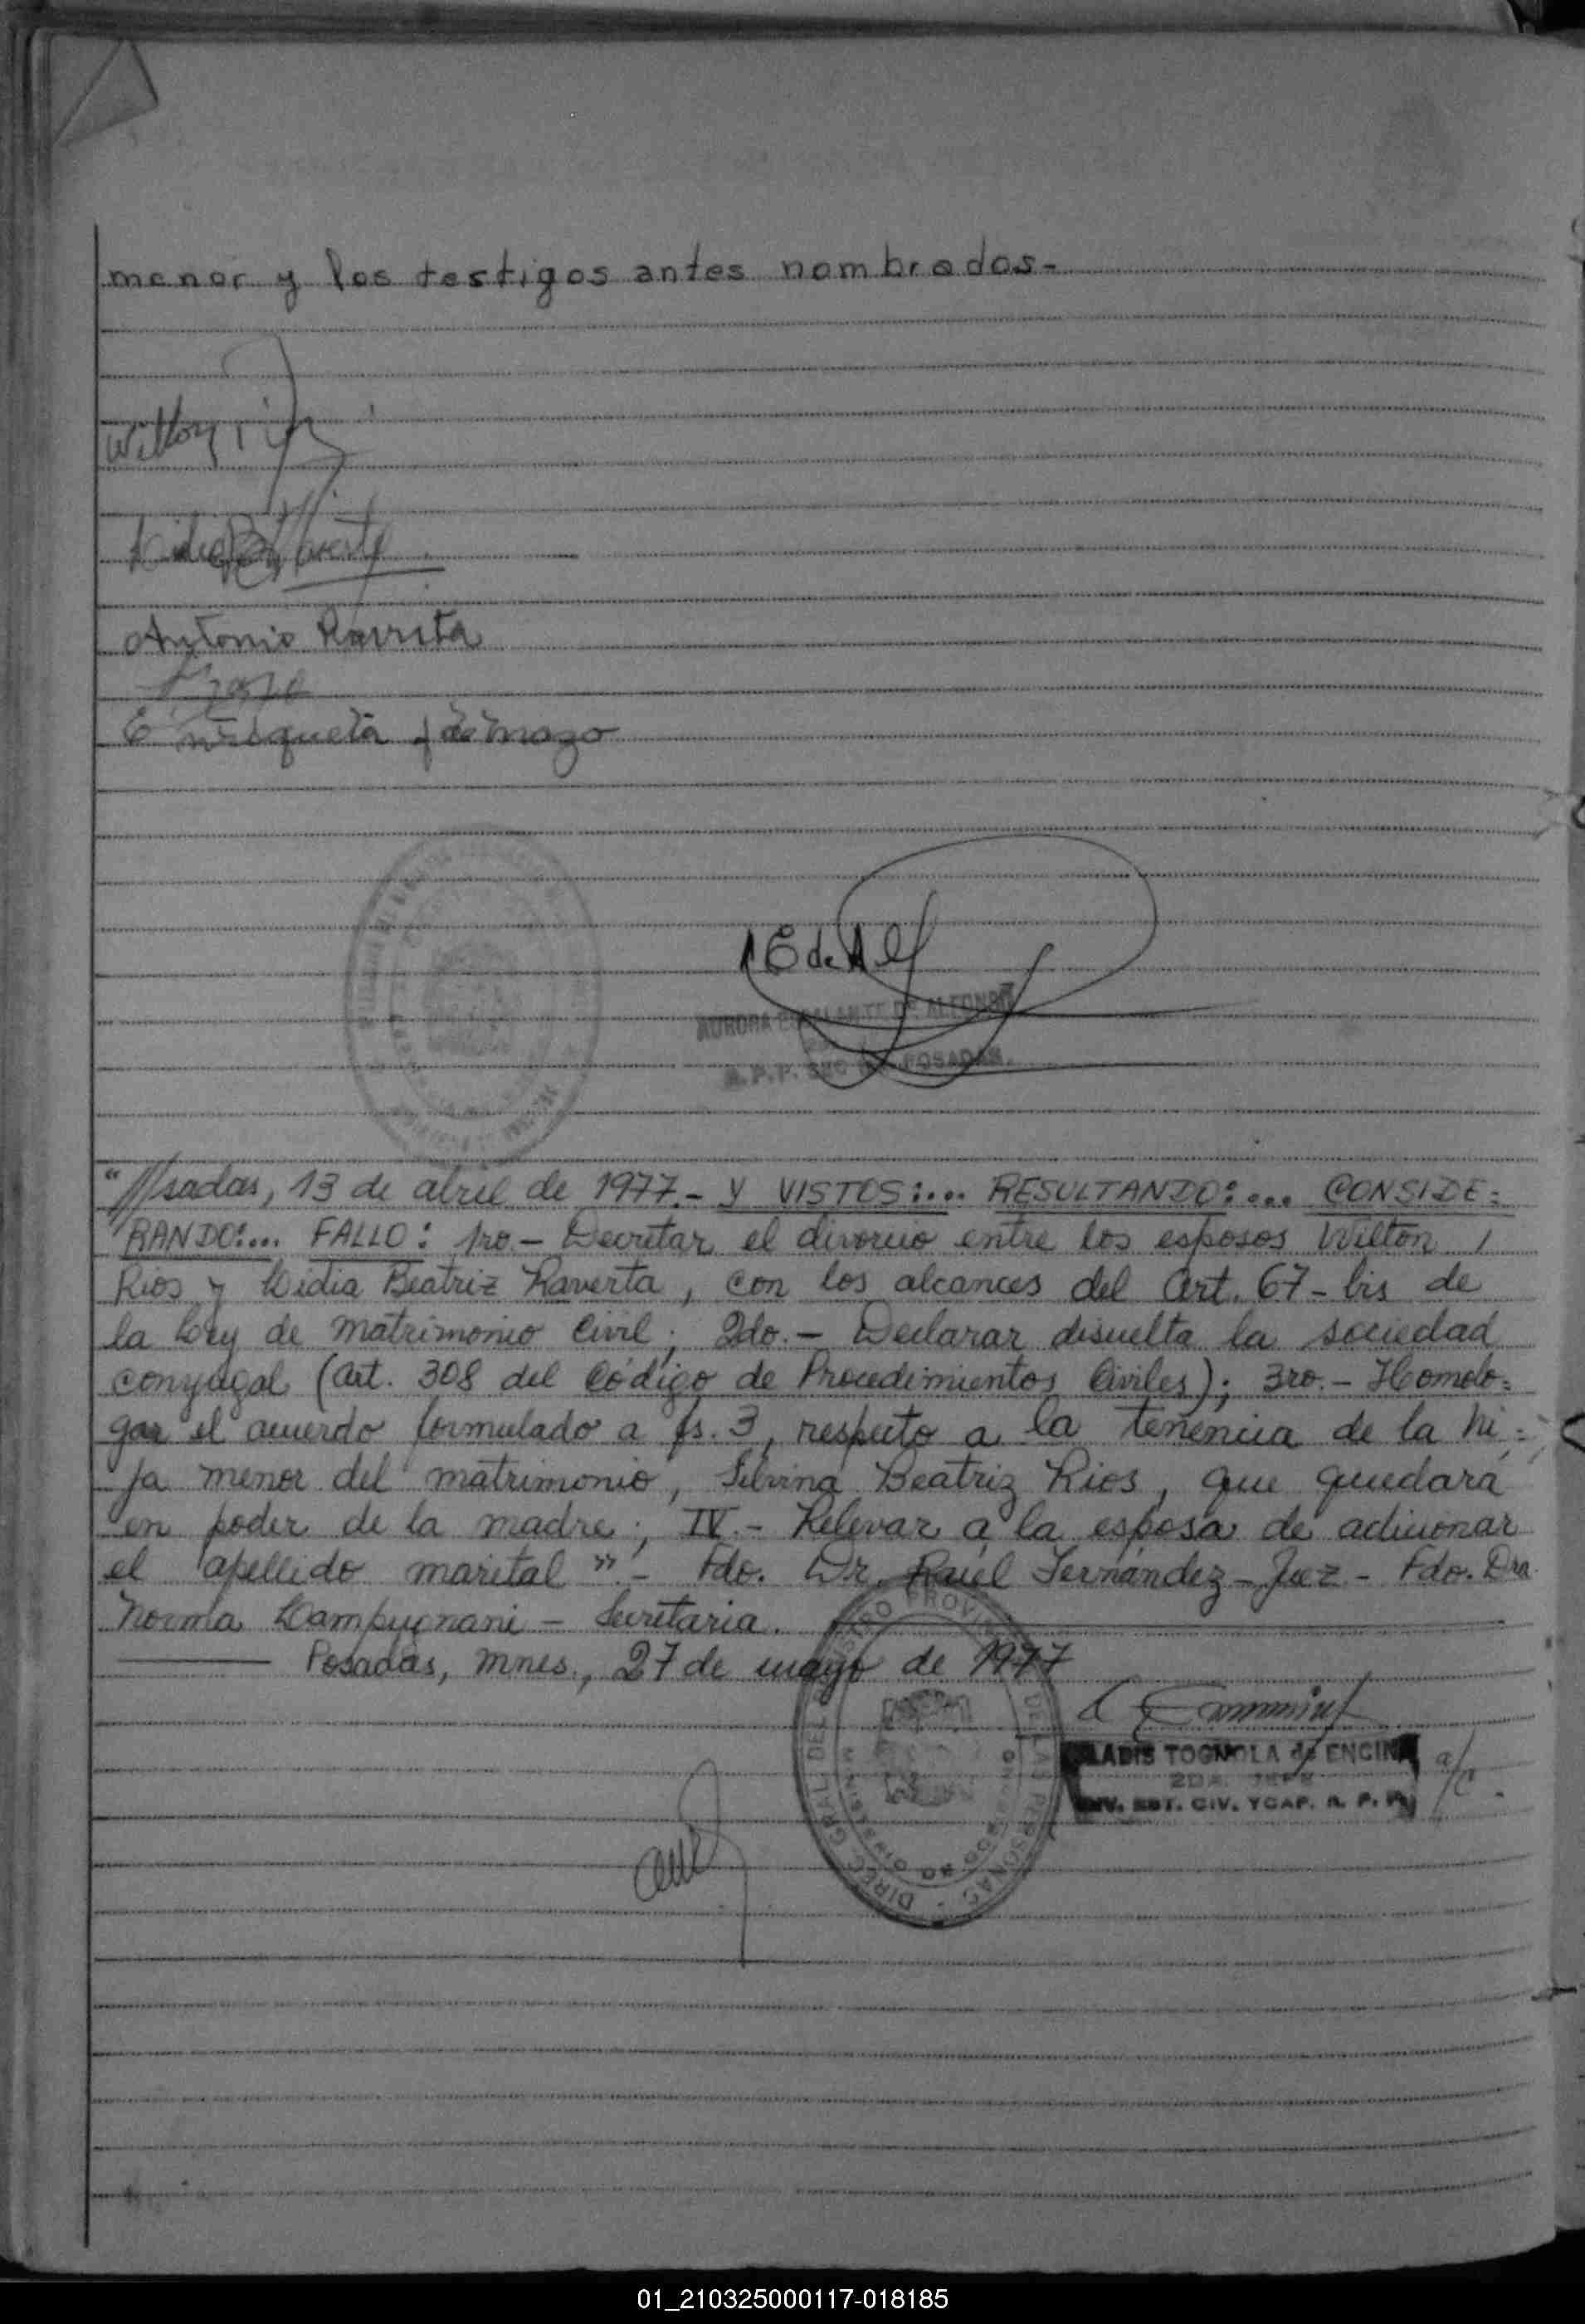 menor y los testigos antes nombrados.-
Wilton
Antonio Raverta
Enriqueta J de Mazo
AURORA ESCALANTE DE ALFONSO
R.P.P. SEC POSADAS.
"Posadas, 13 de abril de 1977.- Y VISTOS:... RESULTANDO:... CONSIDE=
RANDO:... FALLO: 1ro.- Decretar el divorcio entre los esposos Wilton /
Rios y Lidia Beatriz Raverta, con los alcances del Art. 67-bis de
la Ley de matrimonio Civil; 2do.- Declarar disuelta la sociedad
conyugal (art. 308 del Código de Procedimientos Civiles); 3ro.- Homolo=
gar el acuerdo formulado a fs. 3, respecto a la tenencia de la hi=
ja menor del matrimonio, Silvina Beatriz Rios, que quedará
en poder de la madre; IV.- Relevar a la esposa de adicionar
el apellido marital".- Fdo. Dr. Raúl Fernández-Juez- Fdo. Dra.
Norma Campugnani - Secretaria.
Posadas, Mnes., 27 de mayo de 1977
GLADIS TOGNOLA de ENCINA a/c.
2DA. JEFE
DIV. EST. CIV. Y CAP. R. P. P.
01_210325000117-018185